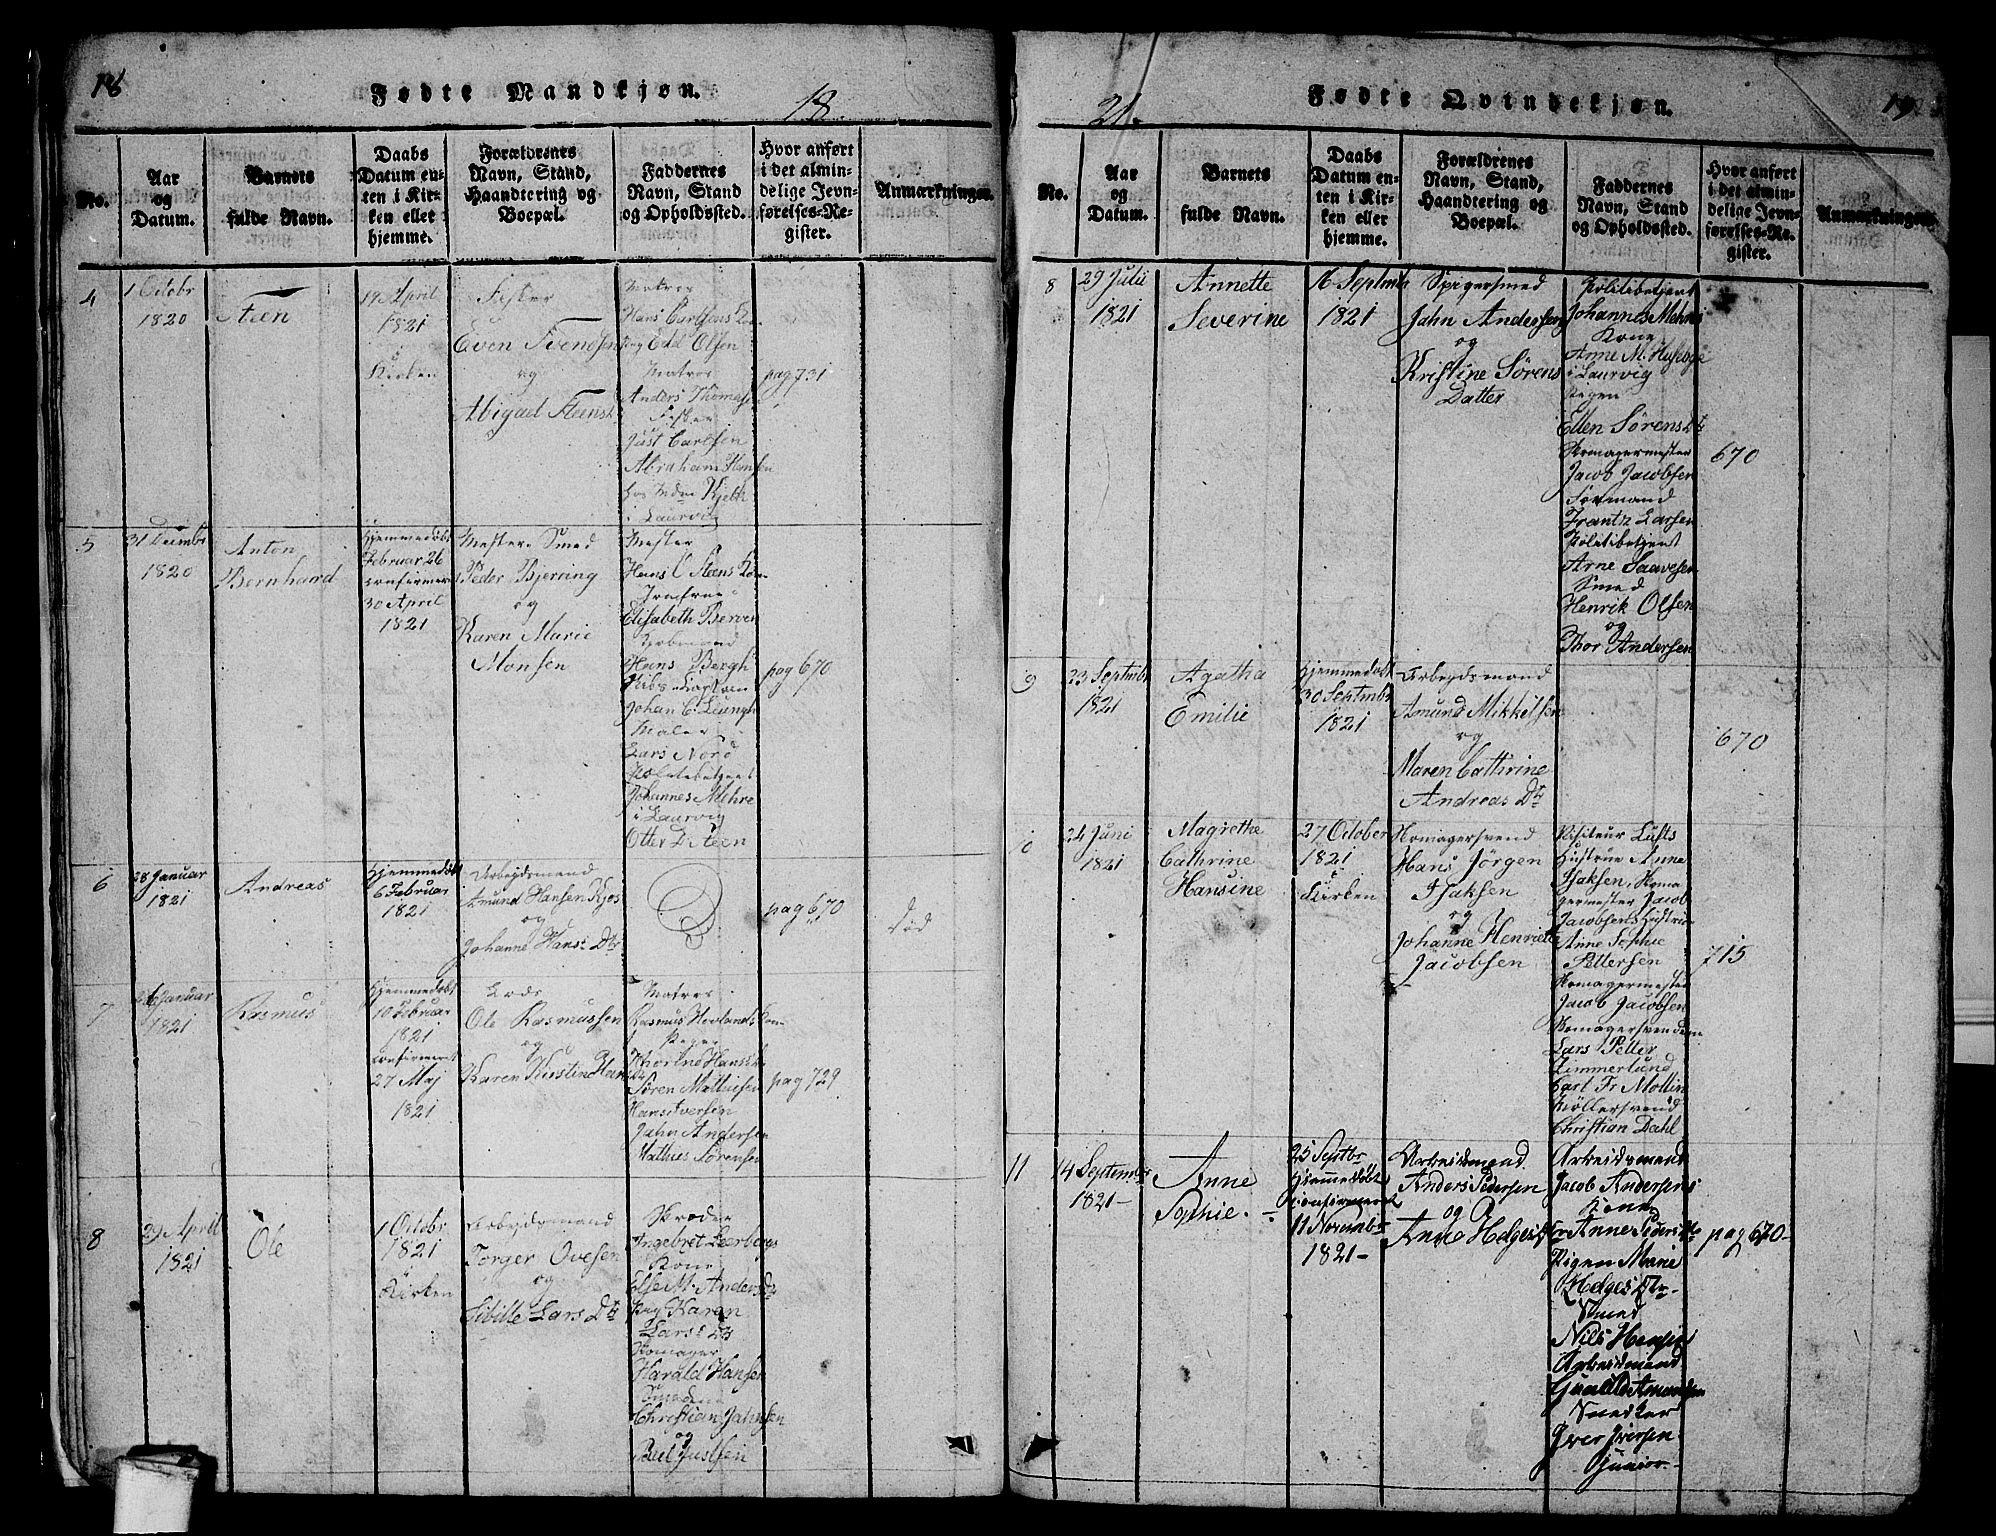 18
Fødte Mandkjøn.
18.
No.
Aar
og
Datum.
Barnets
fulde Navn.
Daabs
Datum en-
ten i Kir-
ken eller
hjemme.
Forældrenes
Navn, Stand,
Haandtering og
Boepæl.
Faddernes
Navn, Stand
og Opholdssted.
Hvor anført
i det almin-
delige Jevn-
førelses-Re-
gister.
Anmærkninger.
4
1 Octobr
1820
Steen
19 April
1821
i
Kirken
Fisker
Even Svendsen
og
Abigael Steens
Matros
Hans Carlsens
Olsen
Matros
Anders Thomesen
Fisker
Just Carlsen
Abraham Hansen
i Laurvig
pag 731
5
31 Decmbr
1820
Anton
Bernhard
Hjemmedøbt
Februar 26
confirmeret
30 April
1821
Mester Smed
Peder Bjerring
og
Karen Marie
Monsen
Mester
Hans C Steens
Jomfrue
Elisabeth Berven
Hans Bergh
Johan C. Leungh
Maler
Lars Nord
Politiebetjent
Johannes Mehre
i Laurvig
Otter D Steen
pag 670
6
28 Januar
1821
Andreas
Hjemmedøbt
6 Februar
1821
Arbeidsmand
Amund Hansen Kjøs
og
Johanne Hans Dtr
pag 670
død
7
26 Januar
1821
Rasmus
Hjemmedøbt
10 Februar
1821
confirmeret
27 Maj
1821
Lods
Ole Rasmussen
og
Karen Kirstine Han
Matros
Rasmus Hovlands kon
Pigen
Hans
Søren Mathiesen
Hans Iversen
Jahn Andersen
Mathies Sørensen
pag 729
8
29 April
1821
Ole
1 Octobr
1821
i
Kirken
Arbejdsmand
Torger Ovesen
og
Sibille Lars Dtr
Skræder
Ingebret Leerbergs
Kone
Else M. Anders Dtr
Karen
Lars Dtr
Skomager
Harald Hansen
Smedene
Christian Jahnsen
og
Poul Justsen
21.
Fødte Qvindekjøn.
19
No.
Aar
og
Datum.
Barnets
fulde Navn.
Daabs
Datum en-
ten i Kir-
ken eller
hjemme.
Forældrenes
Navn, Stand,
Haandtering og
Boepæl.
Faddernes
Navn, Stand
og Opholdssted.
Hvor anført
i det almin-
delige Jevn-
førelses-Re-
gister.
Anmærkninger.
8
29 Julii
1821
Annette
Severine
16 Septmbr
1821
Spigersmed
Jahn Andersen
og
Kristine Sørens
Datter
Politiebetjent
Johannes Mehres
Kone
Anne M.
i Laurvig
Pigen
Ellen Sørens Dtr
Skomagermester
Jacob Jacobsen
Formand
Frantz Larsen
Politiebetjent
Arne Saavesen
Smed
Henrik Olsen
og
Thor Andersen
670
9
23 Septmbr
1821
Agatha
Emilie
Hjemmedøbt
30 Septmbr
1821
Arbejdsmand
Amund Mikkelsen
og
Maren Cathrine
Andreas Dtr
670
10
24 Juni
1821
Magrethe
Cathrine
Hansine
27 October
1821
i
Kirken
Skomagersvend
Hans Jörgen
Isaksen
og
Johanne Henriette
Jacobsen
Visiteur Lufts
Hustrue Anne
Isaksen, Skoma
germester Jacob
Jacobsens Hustrue
Anne Sophie
Pettersen
Skomagermester
Jacob Jacobsen
Skomagersvendene
Lars Petter
Zimmerlund
Carl Fr Mollin
Møllersvend
Christian Dahl
715
11
14 Septembr
1821-
Anne
Sophie.
25 Septbr
hjemmedøbt
confirmeret
11 Novmbr
1821-
Arbeidsmand
Anders Pedersen
og
Anne Helges
Arbeidsmand
Jacob Andersens
Kone
Anne Peders
Pigen Marie
Helges Dtr-
Smed
Nils Hansen
Arbeidsmand
Gunild Amundsen
Snedker
Iver Iversen
Junior-
pag 670-